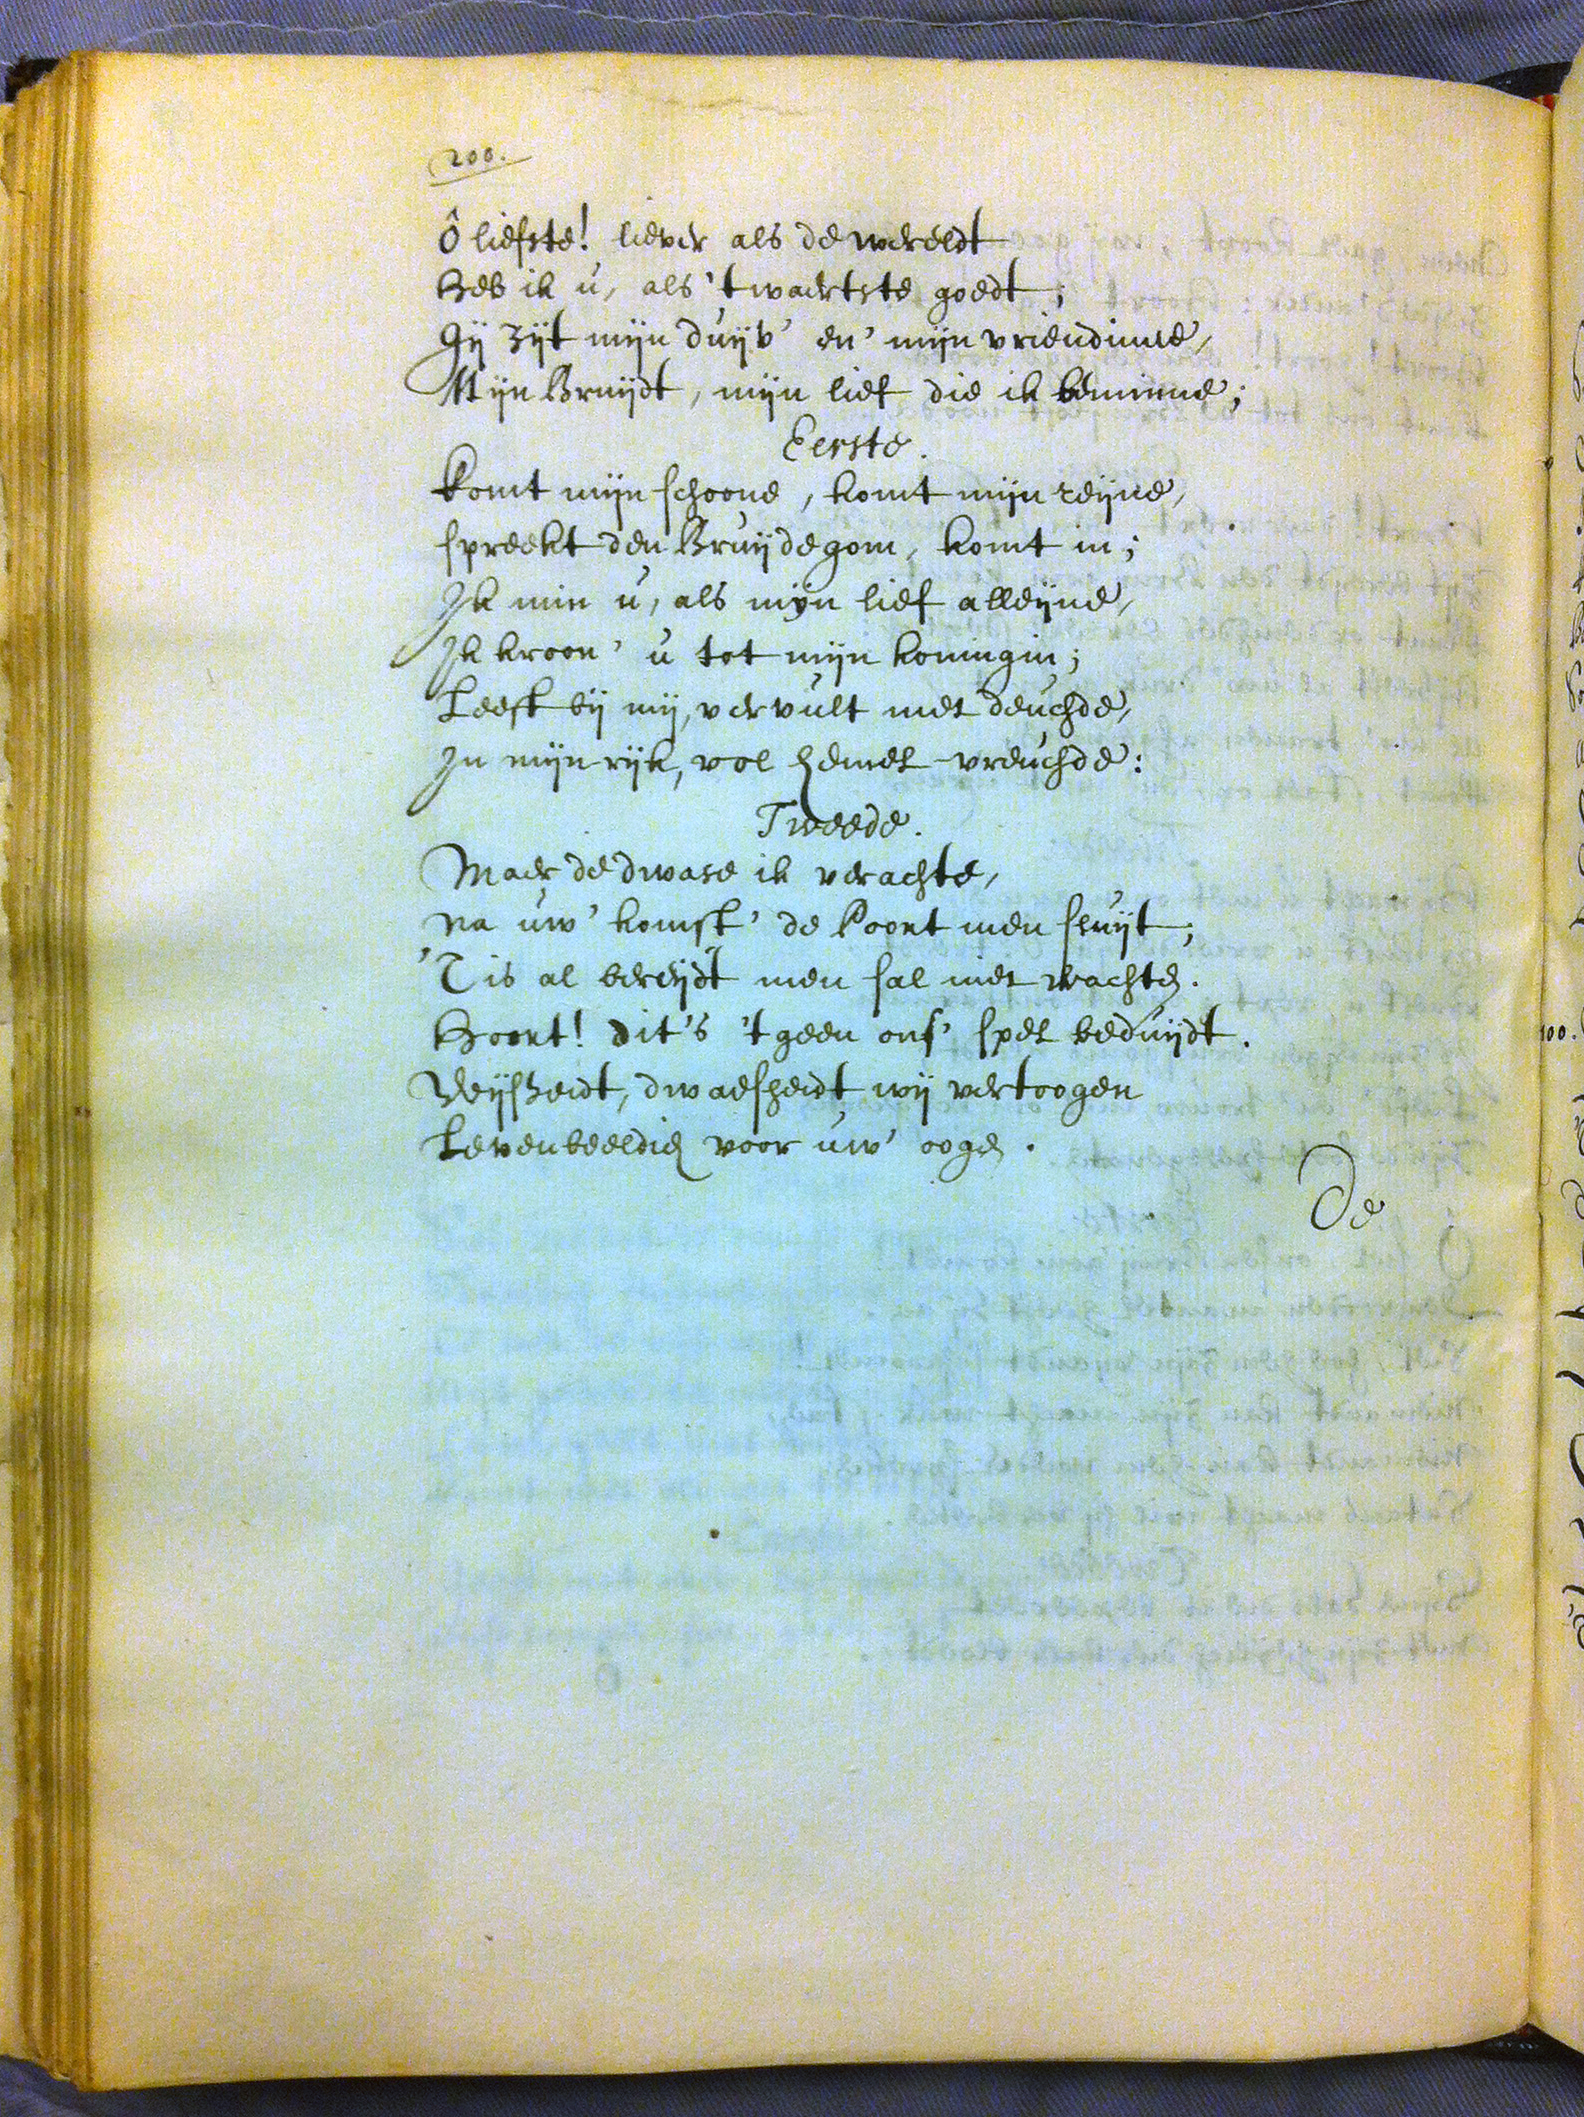 200.
Ô liefste! liever als de wereldt
Heb ik u, als 't waertste goedt;
Gij zijt mijn duijv' en' mijn vriendinne,
Mijn Bruijdt, mijn lief die ik beminne;
Eerste.
Komt mijn schoone, komt mijn reijne,
spreekt den Bruijdegom, komt in;
Ik min u, als mijn lief alleijne,
Ik kroon' u tot mijn koningin;
Leeft bij mij, vervult met deuchde,
In mijn rijk, vol hemel-vreuchde:
Tweede.
Maer de dwase ik verachte,
na uw' komst' de Poort men sluijt;
'Tis al bereijdt men sal niet wachten.
Hoort! dit's 't geen ons' spel beduijdt.
Wijsheidt, dwaesheidt wij vertoogen
Levenbeeldien voor uw' oogen.
De